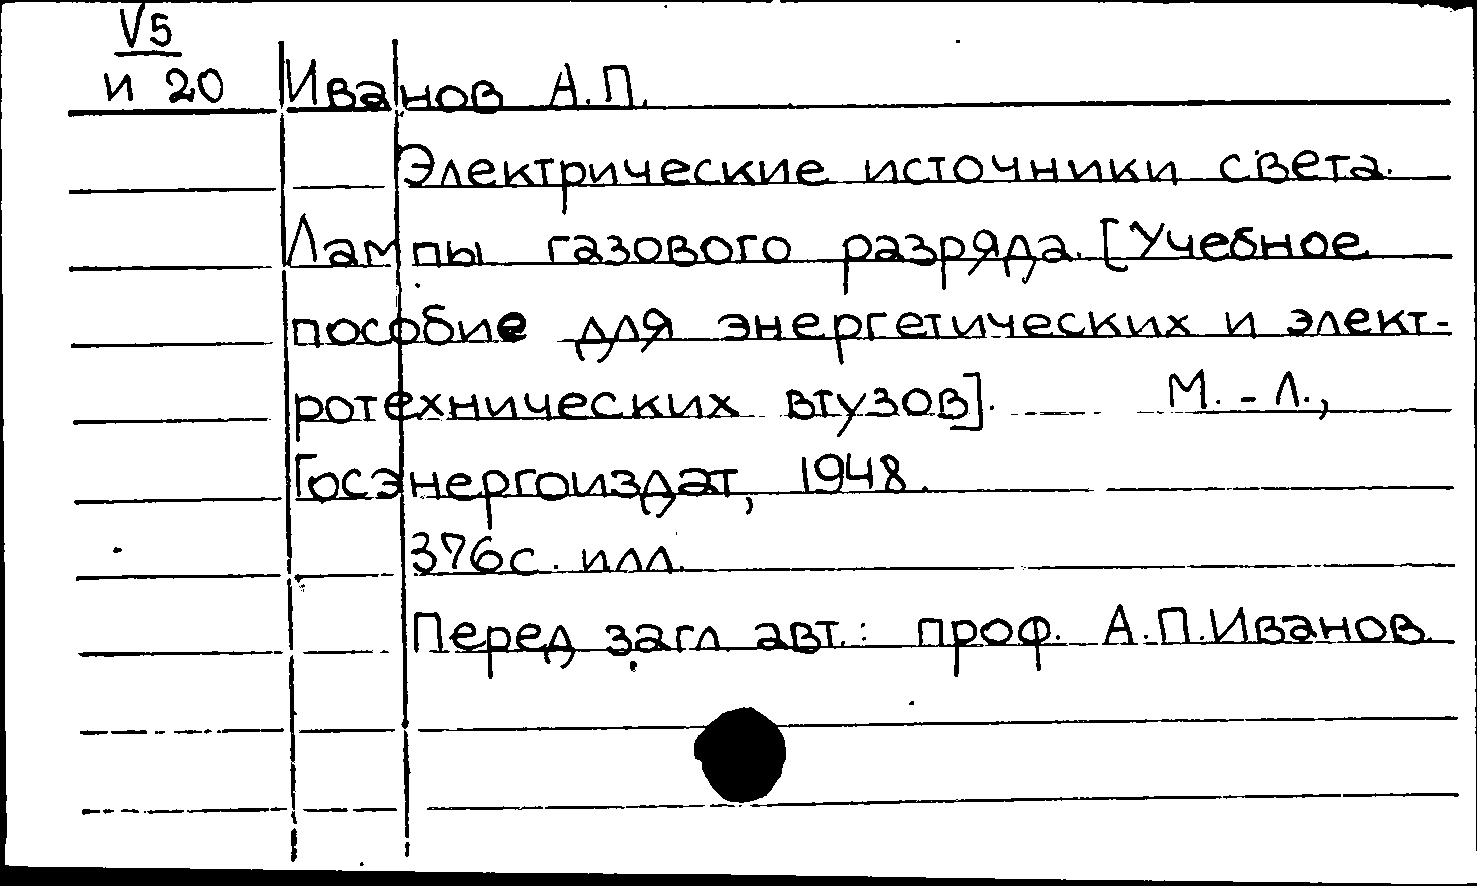 V5
и 20 Иванов А.П.
Электрические источники света.
Лампы газового разряда. [Учебное
пособие для энергетических и элект-
ротехнических втузов]. М. - Л.,
Госэнергоиздат, 1948.
376с. илл.
Перед загл. авт.: проф. А.П.Иванов.